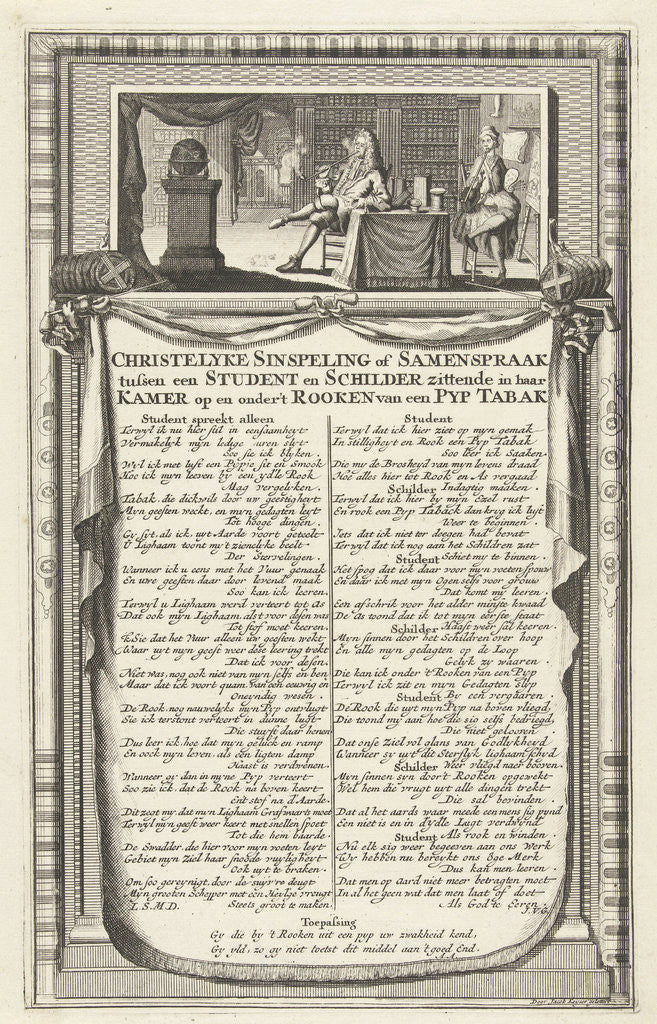 CHRISTELYKE SINSPELING of SAMENSPRAAK
tussen een STUDENT en SCHILDER zittende in haar
KAMER op en onder't ROOKEN van een PYP TABAK
Student spreekt alleen
Terwyl ik nu hier stil in eensaamheyt
Vermakelyk myn ledige uren slyt
Soo sie ick blyken.
Wyl ick met lust een Pypje sit en Smook
Hoe ick myn leeven by een ydle Rook
Mag vergelyken.
Tabak, die dickwils door uw geestigheyt
Myn geesten weckt, en myn gedagten leyt
Tot hooge dingen.
Gy syt, als ick, uyt Aarde voort geteelt
U Lighaam toont my't zienelyke beelt
Der Stervelingen.
Wanneer ick u eens met het Vuur genaak
En uwe geesten daar door levend maak
Soo kan ick leeren.
Terwyl u Lighaam werd verteert tot As
Dat ook myn Lighaam, als't voor desen was
Tot stof moet keeren.
'k Sie dat het Vuur alleen uw geesten wekt
Waar uyt myn geest weer dese leering trekt
Dat ick voor desen.
Niet was, nog ook niet van myn selfs en ben
Maar dat ick voort quam van een eeuwig en
Oneyndig wesen.
De Rook, nog nauwelyks myn Pyp ontvlugt
Sie ick terstont verteert in dunne lugt
Die stuyft daar henen
Dus leer ick, hoe dat myn geluck en ramp
En oock myn leven, als een ligten damp
Haast is verdwenen.
Wanneer gy dan in myne Pyp verteert
Soo zie ick, dat de Rook na boven keert
En't stof na d'Aarde.
Dit zegt my, dat myn Lighaam Grafwaarts moet
Terwyl myn geest weer keert met snellen spoet
Tot die hem baarde.
De Swadder, die hier voor myn voeten leyt
Gebiet myn Ziel haar snoode vuyligheyt
Ook uyt te braken.
Om soo gereynigt, door de suyv're deugt
Myn grooten Schepper met een Heylge vreugt
Steets groot te maken.
I.S.M.D.
Student
Terwyl dat ick hier ziet op myn gemak
In stilligheyt en Rook een Pyp Tabak
Soo leer ick Saaken
Die my de Brosheyd van myn levens draad
Hoe alles hier tot Rook en As vergaad
Indagtig maaken.
Schilder
Terwyl dat ick hier by myn Ezel rust
En rook een Pyp Taback dan kryg ick lust
Weer te beginnen.
Iets dat ick niet ter deegen had bevat
Terwyl dat ick nog aan het Schildren zat
Schiet my te binnen.
Student
Het spog dat ick daar voor myn voeten spouw
En daar ick met myn Ogen selfs voor grouw
Dat komt my leeren.
Een afschrik voor het alder minste kwaad
De As toond dat ik tot myn eerste staat
Haast weer sal keeren.
Schilder
Myn sinnen door het Schilderen over hoop
En alle myn gedagten op de Loop
Gelyk zy waaren.
Die kan ick onder 't Rooken van een Pyp
Terwyl ick zit en myn Gedagten slyp
By een vergaaren.
Student
De Rook die uyt myn Pyp na boven vlied
Die toond my aan hoe die sig selfs bedriegd
Die niet gelooven
Dat onse Ziel vol glans van Godlykheyd
Wanneer sy uyt dit Sterflyk lighaam scheyd
Weer vliegd naer booven.
Schilder
Myn sinnen syn door't Rooken opgewekt
Wel hem die vrugt uyt alle dingen trekt
Die sal bevinden.
Dat al het aards waar meede een mens sig pynd
Een niet is en in d'ydle Lugt verdwynd
Als rook en winden.
Student
Nu elk sig weer begeeven aan ons Werk
Wy hebben nu bereykt ons Oge Merk
Dus kan men leeren.
Dat men op Aard niet meer betragten moet
In al het geen wat dat men laat of doet
Als God te Eeren.
J.V.G.
Toepassing
Gy die by 't Rooken uit een pyp uw zwakheid kend,
Gy yld, zo gy niet toetst dit middel aan 't goed End.
A.A.
Door Jacob Keyser